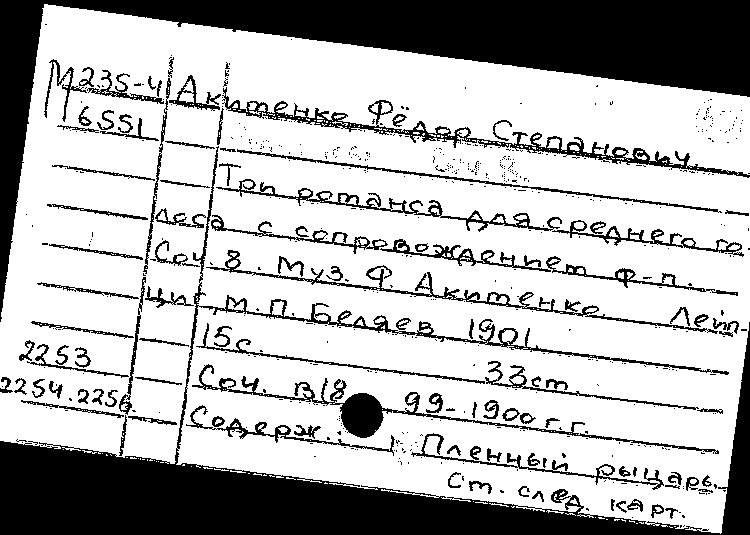 М 235-4 Акименко Фёдор Степанович.
6551
Соч. 8.
Три романса для среднего го-
лоса с сопровождением ф-п.
Соч. 8. Муз. Ф. Акименко. Лейп-
циг, М. П. Беляев, 1901.
15 с. 33 см.
2253 Соч. в 18 99-1900 г.г.
2254.2256 Содерж.: 1 Пленный рыцарь.
См. след. карт.